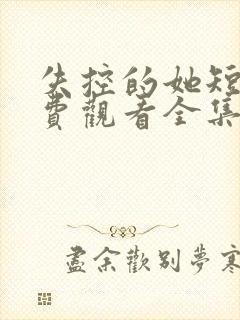 失控的她短
費觀看全集
盡余歡别夢寒